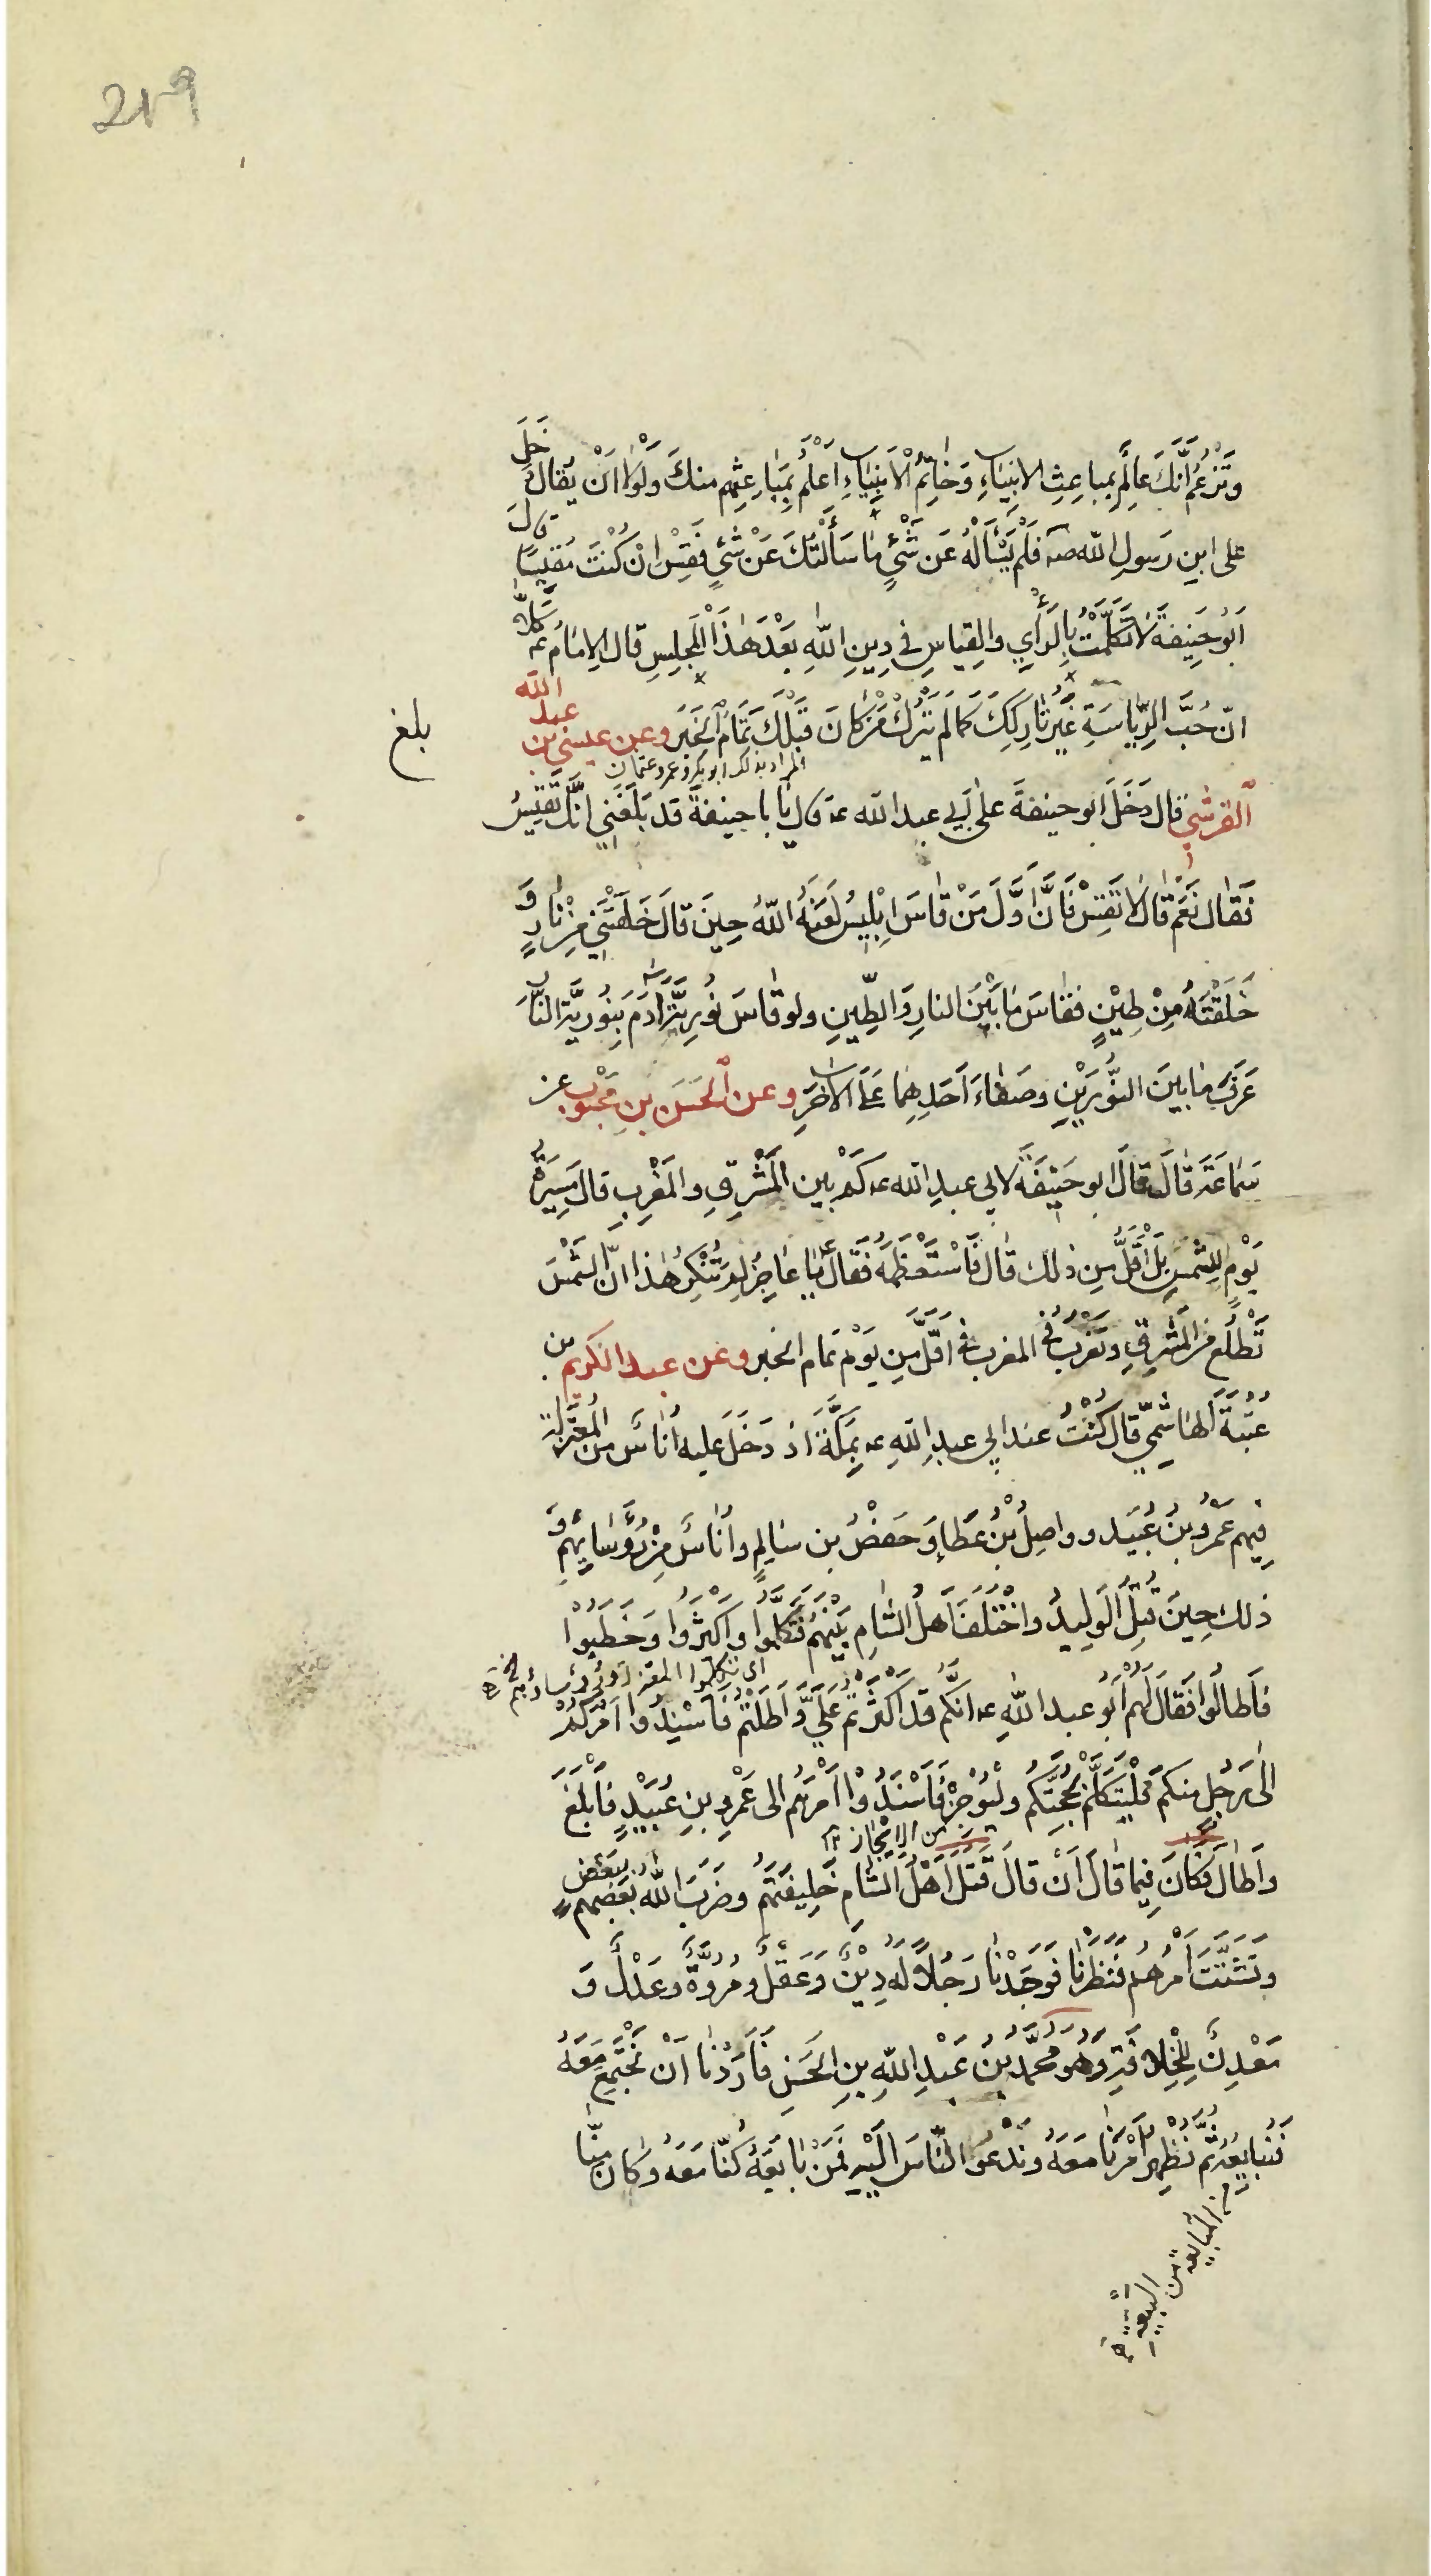 219
وَتَزْعُمُ أَنَّكَ عَالِمٌ بِمباعِثِ الانبِيَاءِ وَخَاتِمُ الْأَنبِيَاءِ أَعْلَمُ بِمَبَاعِثِهِم منكَ وَلَوْلا انْ يُقالَ دَخَلَ
على ابنِ رَسولِ اللّه صه فَلَمْ يَسْأَلْهُ عَن شَيْءٍ مَا سَأَلْتُكَ عَنْ شَيْءٍ فَقِسْ انْ كُنْتَ مُقِيسًا قالَ
ابُو حَنِيفَةَ لا تَكَلَّمْتُ بِالرَأْيِ والقِيَاسِ في دِينِ اللهِ بَعْدَ هَذَا الْمَجلِسِ قال الإمَامُ عه كَلّا
انّ حُبَّ الرِّيَاسَةِ غَيْرُ تَارِكِكَ كَمَا لَم يَتْرُكْ مَنْ كَانَ قَبْلَكَ تَمَامُ الْخَبَر وعن عيسى بن عبد الله
المراد بذلك ابو بكر وعمر وعثمان
بلغ
القرشي قال دَخَلَ ابو حنيفةَ على أَبي عبد الله عه قال يَا با حنيفةَ قد بَلَغَنِي انَّكَ تَقِيسُ
فَقال نَعَمْ قالَ لا تَقِسْ فَانَّ أَوَّلَ مَنْ قاسَ ابْلِيسُ لَعَنَهُ اللّهُ حِينَ قالَ خَلَقْتَنِي مِنْ نارٍ وَ
خَلَقْتَهُ مِنْ طِيْنٍ فقاسَ مَا بَيْنَ النارِ وَالطِّينِ ولو قاسَ نُورِيَّةَ آدَمَ بِنُورِيَّةِ النَّارِ
عَرَفَ مَا بينَ النُّورَيْنِ وصَفَاءَ أَحَدِهِمَا عَلَى الآخَرِ وعن الْحَسَن بنِ مَحْبُوب عن
سَمَاعَةَ قَالَ قالَ ابو حَنِيفَةَ لابي عبدِ الله عه كَمْ بين الْمَشْرِقِ والمَغْرِبِ قالَ مَسِيرَةُ
يَوْمٍ لِلشّمسِ بَلْ أَقَلُّ مِن ذلك قال فَاسْتَعْظَمَهُ فَقَال يَا عَاجِزُ لِمَ تُنْكِرُ هٰذا انّ الشَّمْسَ
تَطْلُعُ مِنَ الْمَشْرِقِ وتَغْرُبُ فِي المغرب في اقَلَّ مِن يَوْمٍ تمام الخبر وعن عبد الكريم بن
عُتْبَةَ الهَاشِمِيِّ قال كُنْتُ عند ابي عبدِ اللهِ عه بِمَكَّةَ اذ دَخَلَ عليه أُناسٌ من المُعْتَزِلَةِ
فيهم عَمْرُو بْنُ عُبَيْد وواصِلُ بْنُ عَطَاءٍ وَحَفصُ بن سَالِمٍ وأُناسٌ مِنْ رُؤَسَائِهِمْ وَ
ذلك حِينَ قُتِلَ الْوَلِيدُ واخْتَلَفَ أَهلُ الشَّامِ بَيْنَهُمْ فَتَكَلَّمُوا وأكْثَرُوا وَخَطَبُوْا
اى تكلموا المعتزلة وروساؤهم
فأَطَالُوا فَقَالَ لَهُمْ أَبُو عبد اللّهِ عه انكُم قد أَكْثَرْتُمْ عَلَيَّ وَأَطَلْتُمْ فَأَسْنِدُوا أَمْرَكُمْ
الى رَجُلٍ منكم فَلْيَتَكَلَّمْ بِحُجَّتِكُم وليُوجِزْ فَأَسْنَدُوْا أَمْرَهُم الى عَمْرِو بنِ عُبَيْدٍ فَأَبْلَغَ
من الايجاز ١٢
وَأَطَالَ فَكَانَ فِيمَا قالَ أَنْ قالَ قَتَلَ أَهْلُ الشّامِ خَلِيفَتَهُمْ وضَرَبَ اللّهُ بَعْضَهُم بِبَعْضٍ
وتَشَتَّتَ أَمْرُهُم فَنَظَرْنَا فَوَجَدْنَا رَجُلًا لَهُ دِيْنٌ وَعَقْلٌ ومُرُوَّةٌ وعَدْلٌ وَ
مَعْدِنٌ لِلْخِلافَةِ وَهُوَ مُحَمَّدُ بْنُ عَبْدِ اللّهِ بنِ الحَسَنِ فَأَرَدْنَا أَنْ نَجْتَمِعَ مَعَهُ
فَنُبايِعَهُ ثُمَّ نُظْهِرَ أَمْرَنَا مَعَهُ ونَدْعُوَ النّاسَ الَيْهِ فَمَنْ بَايَعَهُ كُنّا مَعَهُ وكان مِنَّا
من المبايعة من البيعة